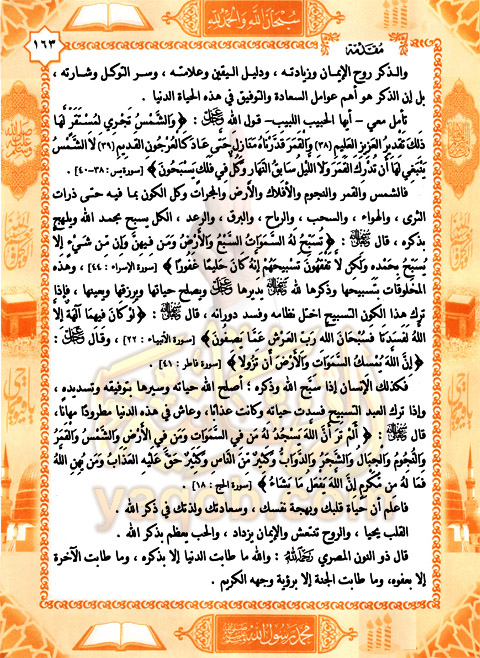 سبحان الله والحمد لله
مقدمة
١٦٣
والذكر روح الإيمان وزيادته ، ودليل اليقين وعلامته ، وسر التوكل وشارته ،
بل إن الذكر هو أهم عوامل السعادة والتوفيق في هذه الحياة الدنيا .
تأمل معي - أيها الحبيب اللبيب- قول الله ﷻ : ﴿ وَالشَّمْسُ تَجْرِي لِمُسْتَقَرٍّ لَّهَا
ذَلِكَ تَقْدِيرُ الْعَزِيزِ الْعَلِيمِ (٣٨) وَالْقَمَرَ قَدَّرْنَاهُ مَنَازِلَ حَتَّى عَادَ كَالْعُرْجُونِ الْقَدِيمِ (٣٩) لَا الشَّمْسُ
يَنْبَغِي لَهَا أَن تُدْرِكَ الْقَمَرَ وَلَا اللَّيْلُ سَابِقُ النَّهَارِ وَكُلٌّ فِي فَلَكٍ يَسْبَحُونَ ﴾ [سورة يس: ٣٨-٤٠] .
فالشمس والقمر والنجوم والأفلاك والأرض والمجرات وكل الكون بما فيه حتى ذرات
الثرى ، والهواء ، والسحب ، والرياح ، والبرق ، والرعد ، الكل يسبح بحمد الله ويلهج
بذكره ، قال ﷻ : ﴿ تُسَبِّحُ لَهُ السَّمَوَاتُ السَّبْعُ وَالْأَرْضُ وَمَن فِيهِنَّ وَإِن مِّن شَيْءٍ إِلَّا
يُسَبِّحُ بِحَمْدِهِ وَلَكِن لَّا تَفْقَهُونَ تَسْبِيحَهُمْ إِنَّهُ كَانَ حَلِيمًا غَفُورًا ﴾ [سورة الإسراء : ٤٤] ، وهذه
المخلوقات بتسبيحها وذكرها لله ﷻ يدبرها ﷻ ويصلح حياتها ويرزقها ويعينها ، فإذا
ترك هذا الكون التسبيح اختل نظامه وفسد دورانه ، قال ﷻ : ﴿ لَوْ كَانَ فِيهِمَا آلِهَةٌ إِلَّا
اللَّهُ لَفَسَدَتَا فَسُبْحَانَ اللَّهِ رَبِّ الْعَرْشِ عَمَّا يَصِفُونَ ﴾ [سورة الأنبياء : ٢٢] ، وقال ﷻ :
﴿ إِنَّ اللَّهَ يُمْسِكُ السَّمَوَاتِ وَالْأَرْضَ أَن تَزُولَا ﴾ [سورة فاطر : ٤١] .
فكذلك الإنسان إذا سبح الله وذكره ؛ أصلح الله حياته وسيرها بتوفيقه وتسديده ،
وإذا ترك العبد التسبيح فسدت حياته وكانت عذابًا، وعاش في هذه الدنيا مطرودًا مهانًا،
قال ﷻ : ﴿ أَلَمْ تَرَ أَنَّ اللَّهَ يَسْجُدُ لَهُ مَن فِي السَّمَوَاتِ وَمَن فِي الْأَرْضِ وَالشَّمْسُ وَالْقَمَرُ
وَالنُّجُومُ وَالْجِبَالُ وَالشَّجَرُ وَالدَّوَابُّ وَكَثِيرٌ مِّنَ النَّاسِ وَكَثِيرٌ حَقَّ عَلَيْهِ الْعَذَابُ وَمَن يُهِنِ اللَّهُ
فَمَا لَهُ مِن مُّكْرِمٍ إِنَّ اللَّهَ يَفْعَلُ مَا يَشَاءُ ﴾ [سورة الحج : ١٨] .
فاعلم أن حياة قلبك وبهجة نفسك ، وسعادتك ولذتك في ذكر الله .
القلب يحيا ، والروح تنتعش والإيمان يزداد ، والحب يعظم بذكر الله .
قال ذو النون المصري رحمه الله : والله ما طابت الدنيا إلا بذكره ، وما طابت الآخرة
إلا بعفوه، وما طابت الجنة إلا برؤية وجهه الكريم .
محمد رسول الله ﷺ
yaqob.com